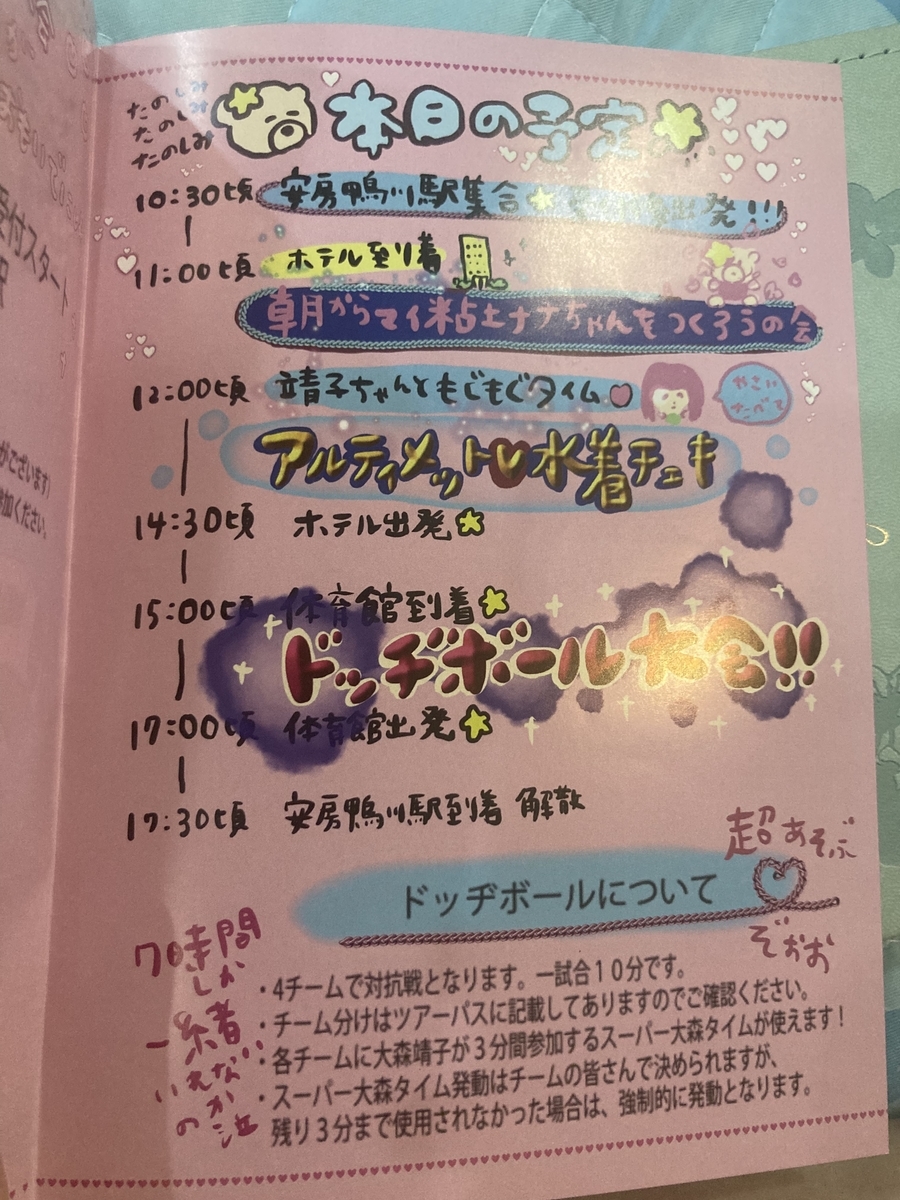 たのしみ
たのしみ
たのしみ
本日の予定
10:30頃 安房鴨川駅集合 出発!!!
11:00頃 ホテル到着
卓月からマイ粘土ナナちゃんをつくろうの会
12:00頃 靖子ちゃんともぐもぐタイム
やさい
たべて
アルティメット♡水着チェキ
14:30頃 ホテル出発
15:00頃 体育館到着
ドッヂボール大会!!
17:00頃 体育館出発
17:30頃 安房鴨川駅到着 解散
超あそぶ
ぞおお
ドッヂボールについて
7時間
しか
一緒
いれない
のか泣
・4チームで対抗戦となります。一試合10分です。
・チーム分けはツアーパスに記載してありますのでご確認ください。
・各チームに大森靖子が3分間参加するスーパー大森タイムが使えます!
・スーパー大森タイム発動はチームの皆さんで決められますが、
残り3分まで使用されなかった場合は、強制的に発動となります。
受付スタート
がございます)
参加ください。